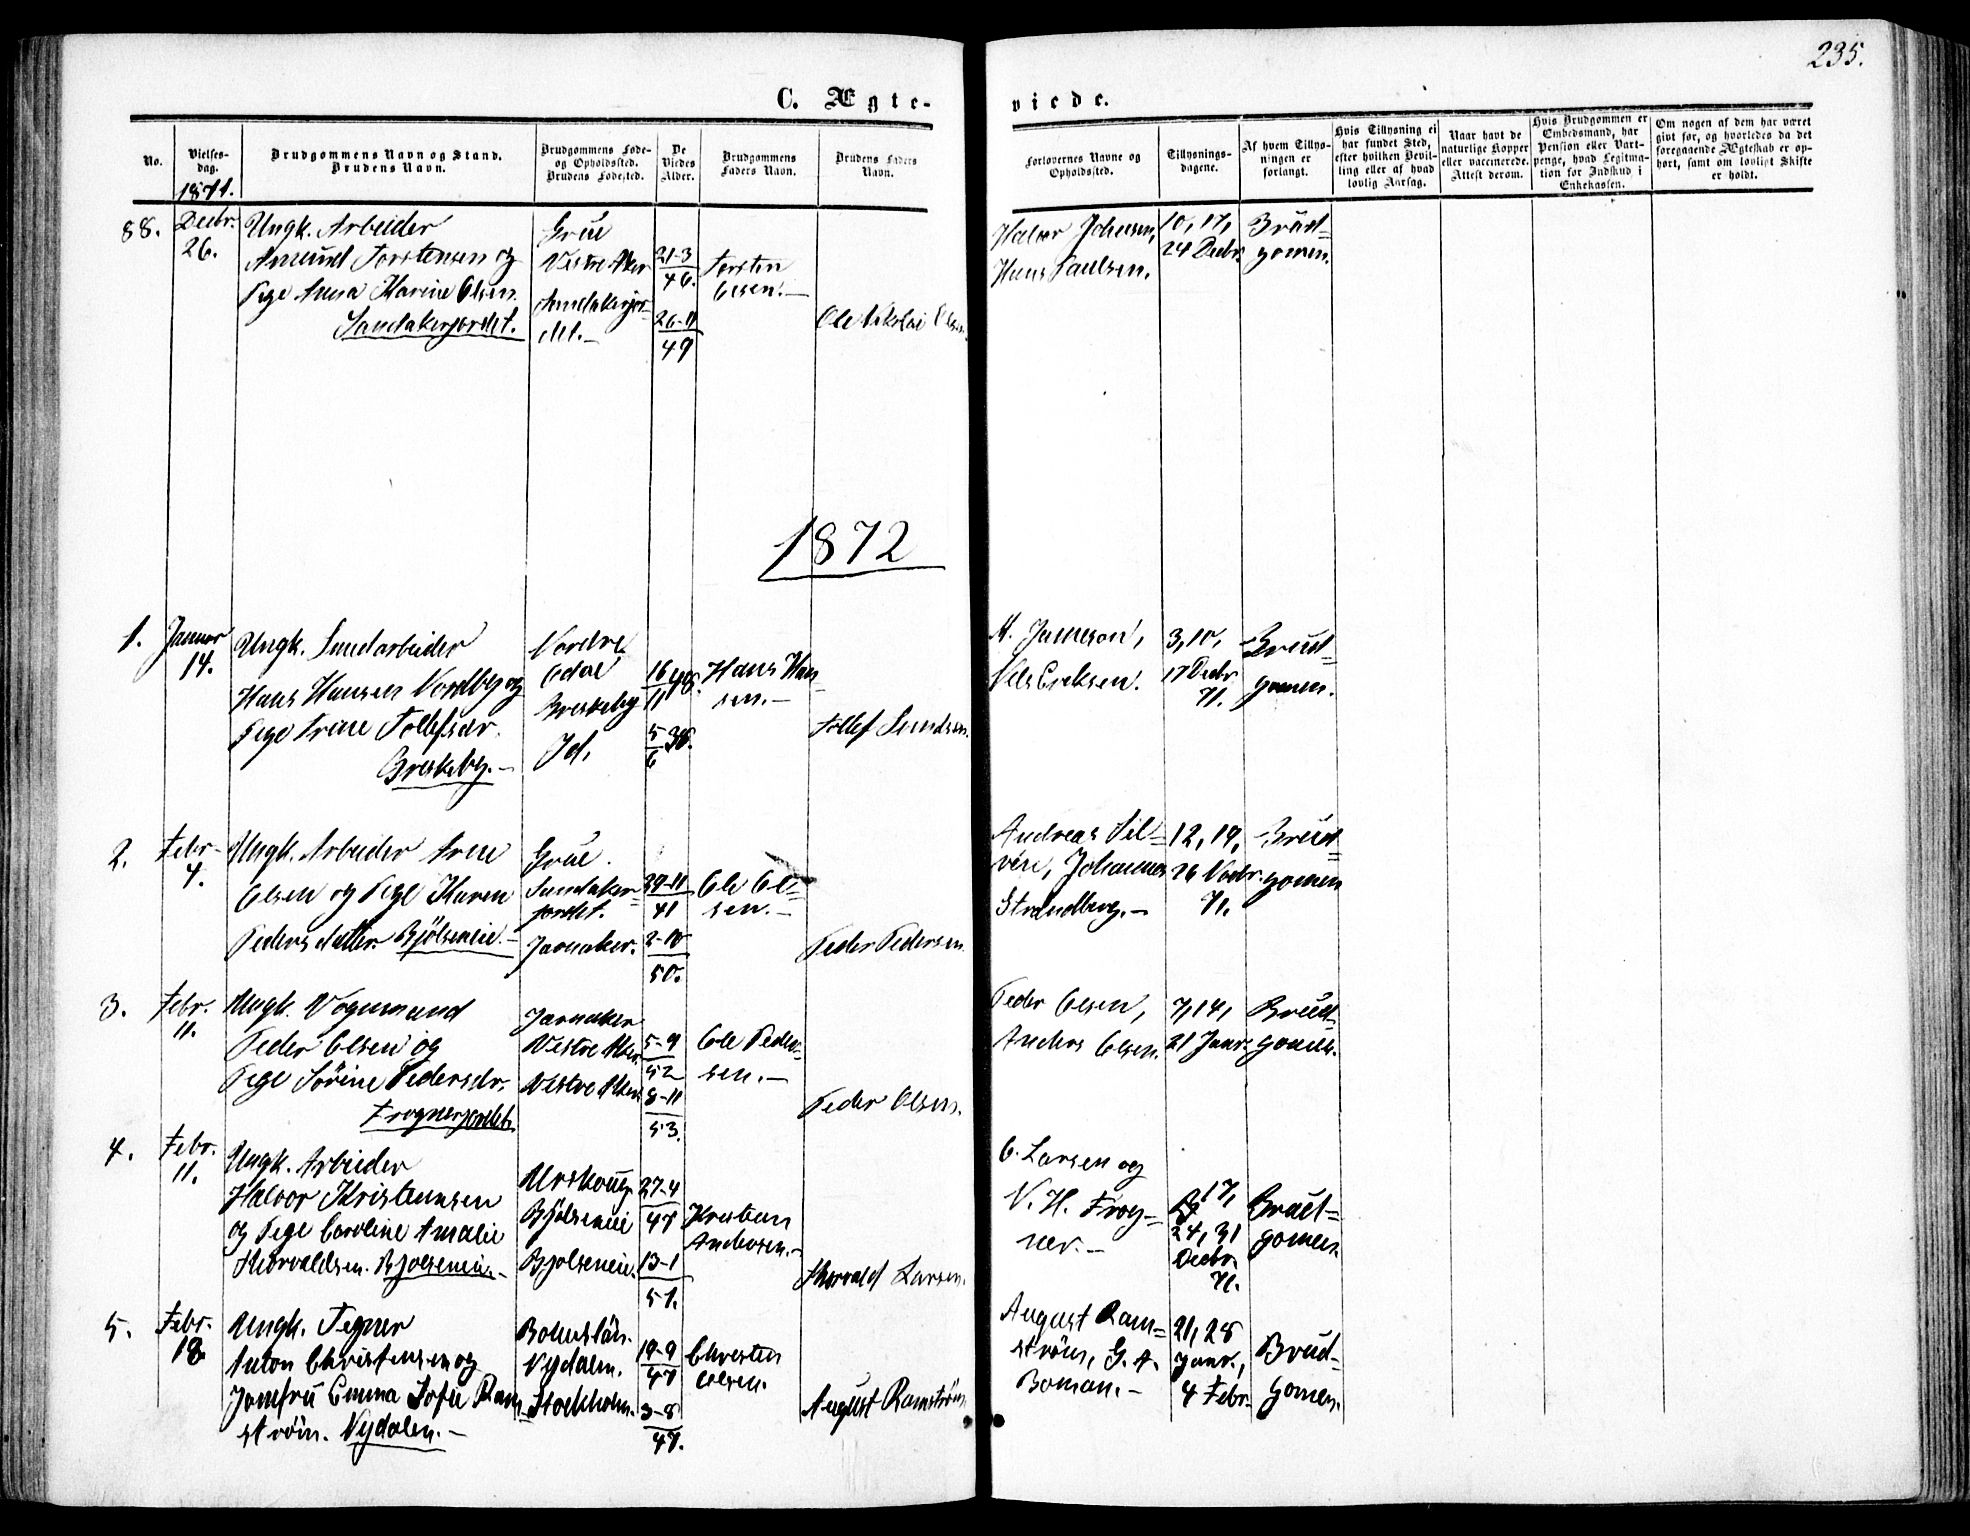 235.
C. Ægte-
viede.
No.
Vielses-
dag.
Brudgommens Navn og Stand.
Brudens Navn.
Brudgommens Føde-
og Opholdssted.
Brudens Fødested.
De
Viedes
Alder.
Brudgommens
Faders Navn.
Brudens Faders
Navn.
Forlovernes Navne og
Opholdssted.
Tillysnings-
dagene.
Af hvem Tillys-
ningen er
forlangt.
Hvis Tillysning ei
har fundet Sted,
efter hvilken Bevil-
ling eller af hvad
lovlig Aarsag.
Naar havt de
naturlige Kopper
eller vaccinerede.
Attest derom.
Hvis Brudgommen er
Embedsmand, har
Pension eller Vart-
penge, hvad Legitima-
tion for Indskud i
Enkekassen.
Om nogen af dem har været
givt før, og hvorledes da det
foregaaende Ægteskab er op-
hørt, samt om lovligt Skifte
er holdt.
1871.
88.
Decbr.
26.
Ungk. Arbeider
Amund Torstensen og
Pige Anna Karine Olsen.
Sandakerjordet.
Grue
Vestre Aker
Sandakerjor-
det.-
21-3
46.
26-11
49
Torsten
Olsen.-
Ole Nikolai Olsen.
Halvor Johnsen,
Hans Paulsen.
10, 17,
24 Decbr.
Brud-
gomen.
1872
1.
Januar
14.
Ungk. Landarbeider
Hans Hansen Nordby og
Pige Trine Tollefsdr.
Briskeby.-
Nordre
Odal
Briskeby
Id,
16
11 48.
5
6 38.
Hans Han-
sen.-
Tollef
Jameson,
Nils Eriksen.
3, 10,
17 Decbr
71.
Brud-
gomen.
2.
Febr.
4.
Ungk. Arbeider Arne
Olsen og Pige Karen
Pedersdatter Bjölseneie.-
Grue.
Sandaker-
jordet.
Jarnaker.
29-11
41
2-10
50.
Ole Ol-
sen.-
Peder Pedersen.
Andreas Sel-
Johannes
Strandberg.-
12, 19,
26 Novbr.
71.
Brud-
gomen
3.
Febr.
11.
Ungk. Vognmand
Peder Olsen og
Pige Sörine Pedersdr.
Frognerjordet.
Jarnaker
Vestre Aker.
Vestre Aker.
5-9
52
8-11
53.
Ole Peder-
sen.-
Peder Olsen.
Peder Olsen,
Anders Olsen.
7, 14,
21 Janr.
Brud-
gomen.
4.
Febr.
11.
Ungk. Arbeider
Halvor Kristiansen
og Pige Caroline Amalie
Thorvaldsen. Bjölseneie.-
Urskoug
Bjölseneie
Bjölseneie.
27-4
47
13-1
51.
Kristian
Andersen.-
Thorvald Larsen.
C. Larsen og
N. H. Frog-
ner.-
17,
24, 31
Decbr.
71.
Brud-
gomen
5.
Febr.
18.
Ungk. Tegner
Anton Christensen og
Jomfru Emma Sofie Ram-
ström. Nydalen.-
Bohuslän.
Nydalen.
Stockholm.
19-9
47
3-8
47.
Christen
Olsen.
August Ramström
August Ram-
ström, G. A.
Boman.-
21, 28
Janr.,
4 Febr.
Brud-
gomen.